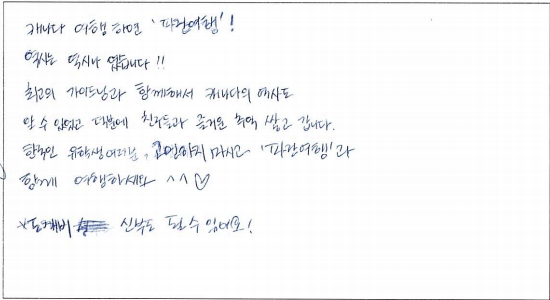 캐나다 여행 하면 '파란여행'!
역시는 역시나 였습니다!!
최고의 가이드님과 함께해서 캐나다의 역사도
알 수 있었고 덕분에 친구들과 즐거운 추억 쌓고 갑니다.
한국인 유학생 여러분, 고민하지 마시고 '파란여행'과
함께 여행하세요 ^^♡
*도깨비 신부도 될 수 있어요!